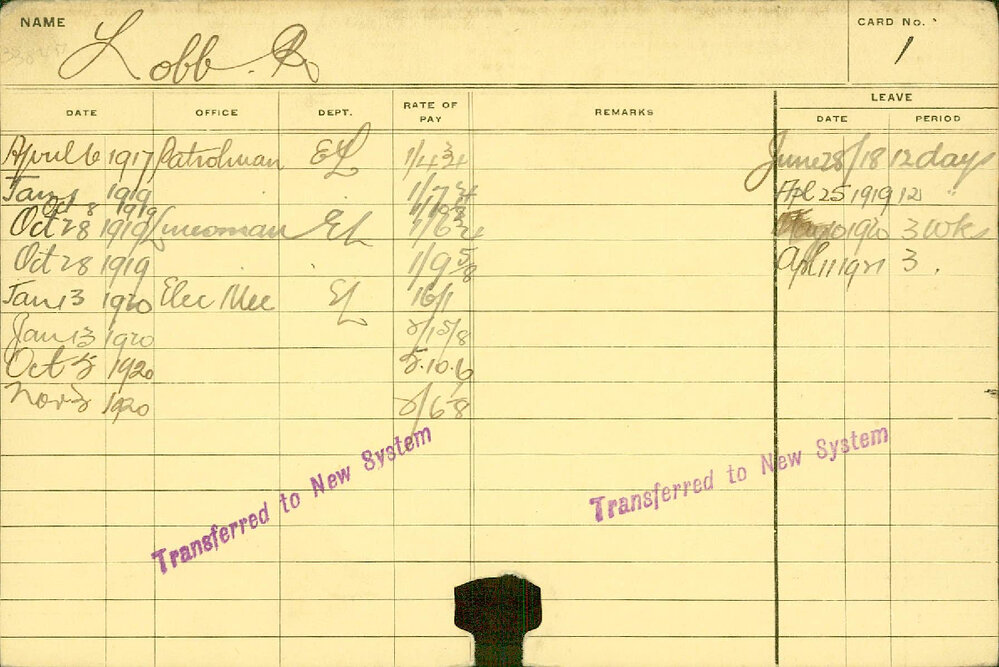 NAME
CARD No.
1
Lobb. R
DATE OFFICE DEPT. RATE OF PAY REMARKS LEAVE
DATE PERIOD
April 6 1917 Patrolman EL 1/4 3/4 June 28/18 12 days
Jan 1 1919 1/7 Apl 25 1919 12 "
Oct 8 1919 1/8
Oct 28 1919 Lineman EL 1920 3 wks
Oct 28 1919 1/9 5/8 Apl 11 1921 3.
Jan 13 1920 Elec Mec EL 16/1
Jan 13 1920
Oct 5 1920 5.10.6
Nov 1920
Transferred to New System
Transferred to New System